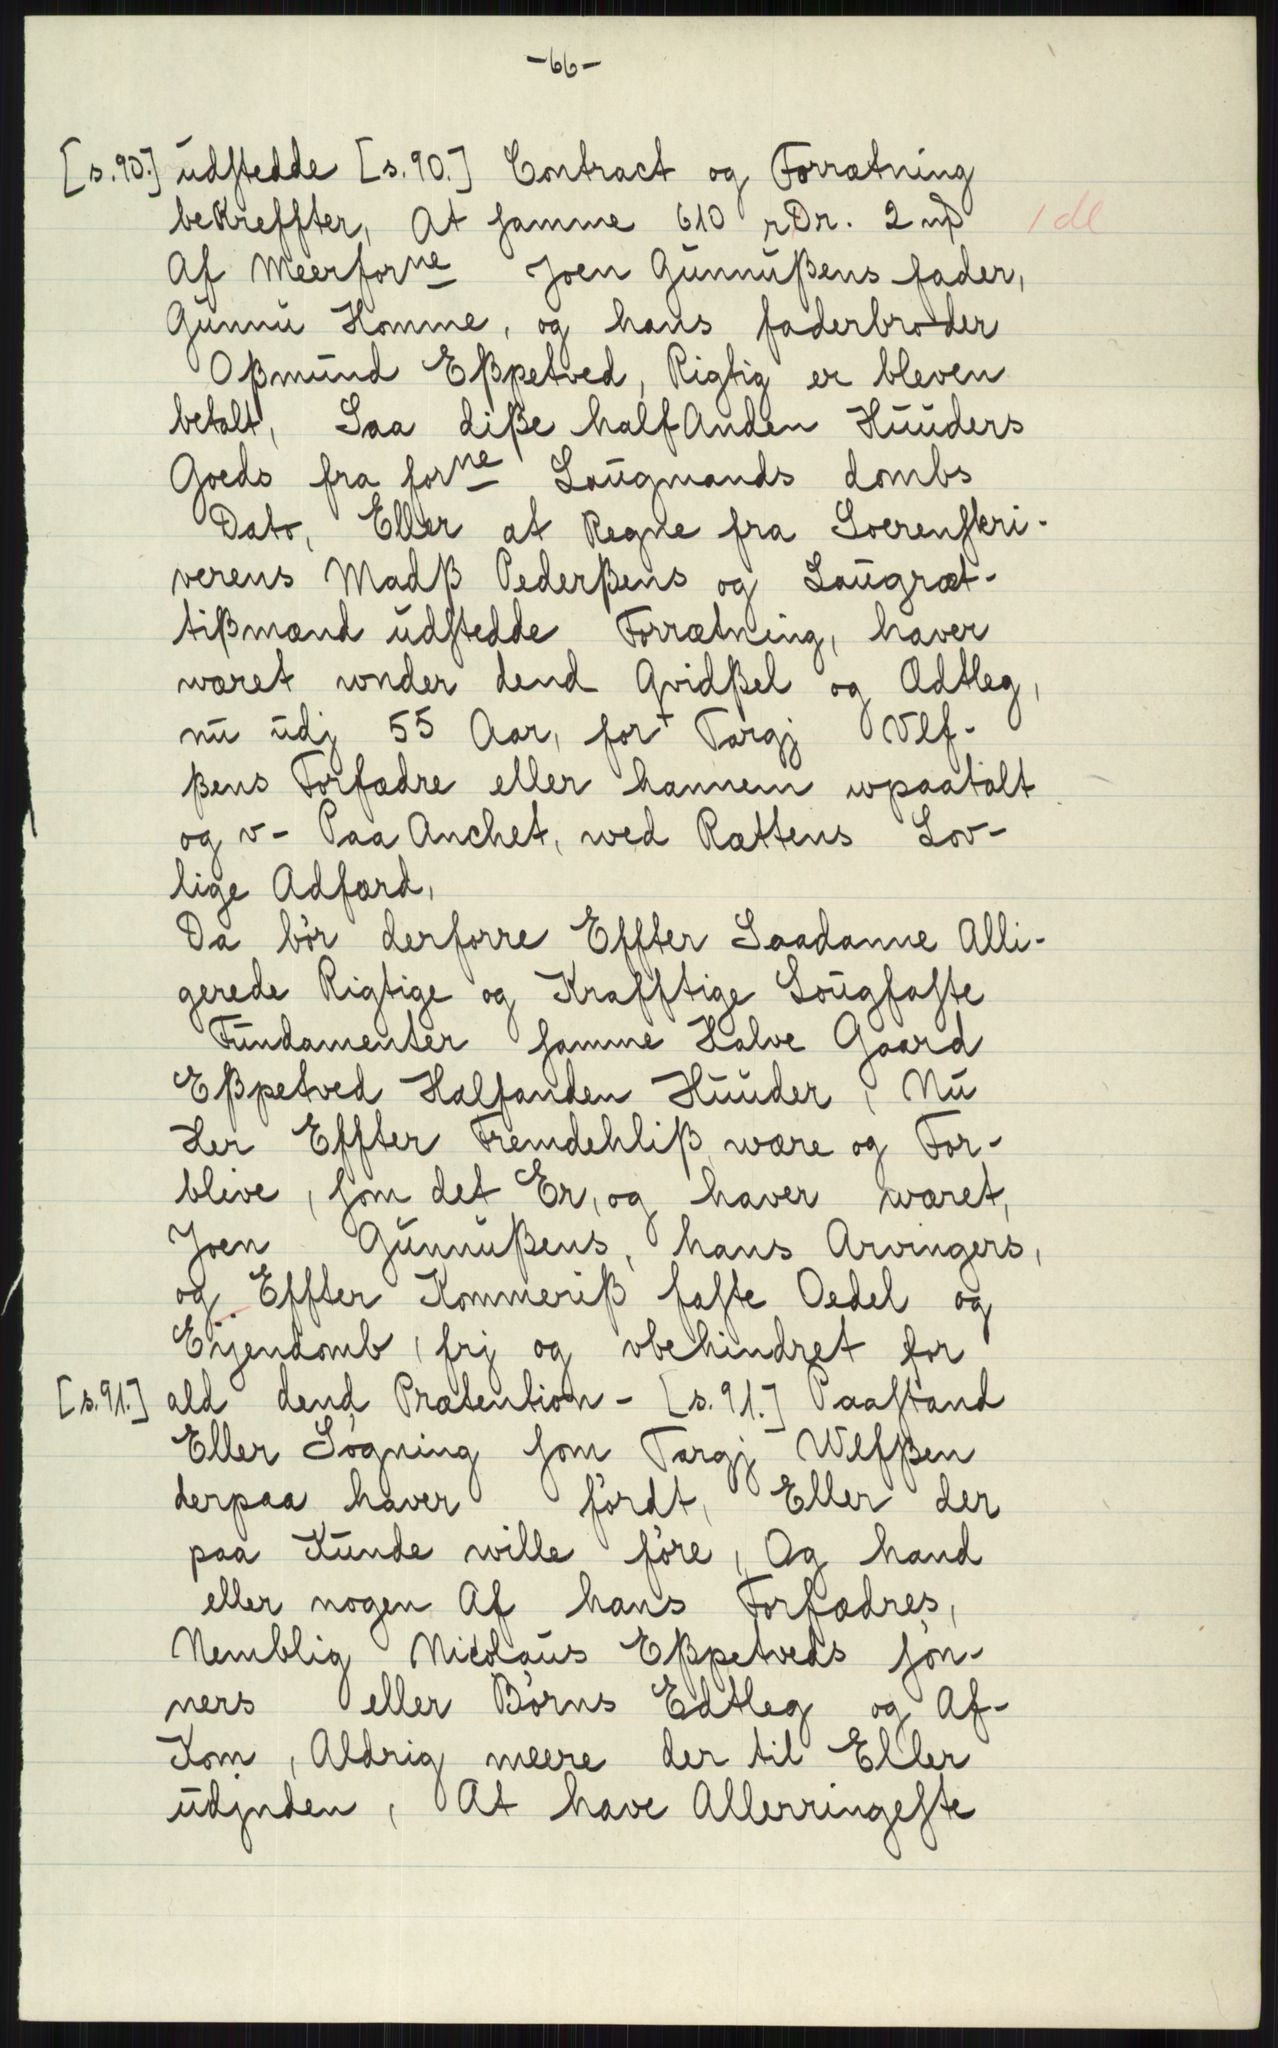 -66-
[s.90.] udstedde [s.90.] Contract og Forrætning
bekreffter, At samme 610 rDr. 2 mk 1 dl
Af Meerforne Joen Gunnußens fader,
Gunnu Homme, og hans faderbroder
Oßmund Eßpetved, Rigtig er bleven
betalt, Saa diße halfAnden Huuders
Goeds fra forne Laugmands dombs
Dato, Eller at Regne fra Soerenskri-
verens Madß Pederßens og Laugræt-
tißmænd udstedde Forrætning, haver
wæret wnder dend Qvidßel og Ædtleg,
nu udj 55 Aar, for Targj Vlf-
ßens Forfædre eller hannem wpaatalt
og v- Paa Anchet, wed Rættens Lov-
lige Adfærd,
Da bør derforre Effter Saadanne Alli-
gerede Rigtige og Krafftige Lougfaste
Fundamenter samme Halve Gaard
Eßpetved Halfanden Huuder, Nu
Her Effter Fremdehliß wære og For-
blive, som det Er, og haver wæret,
Joen Gunnußens, hans Arvingers,
og Effter Kommeriß faste Oedel og
Eÿendomb, frj og vbehindret for
[s.91.] ald dend Prætention - [s.91.] Paastand
Eller Søgning som Targj Wlfßen
derpaa haver ført, Eller der
paa Kunde wille føre, Og hand
eller nogen Af hans Forfædres,
Nemblig Nicolaus Eßpetveds Søn-
ners eller Børns Edtleg og Af-
Kom, Aldrig meere der til Eller
udjnden, At have Allerringeste